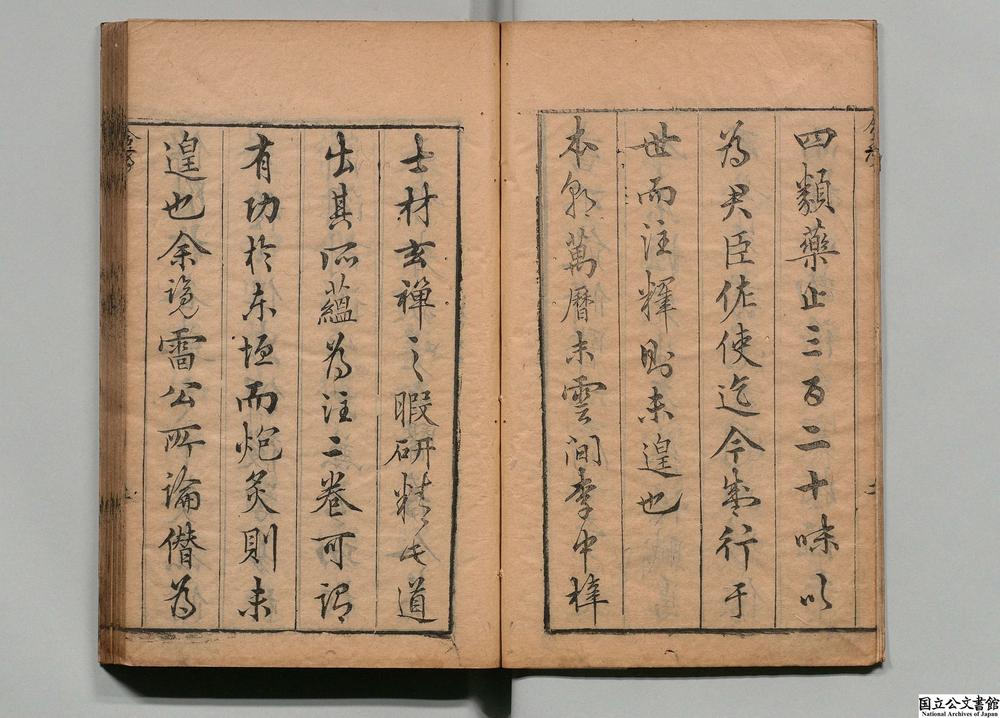 四類藥止三百二十味以
為君臣佐使迄今盛行于
世而注釋則未遑也
本朝萬曆末雲間李中梓
士材玄禪之暇研精此道
出其所蘊為注二卷可謂
有功於東垣而炮炙則未
遑也余覽雷公所論僭為
国立公文書館
National Archives of Japan